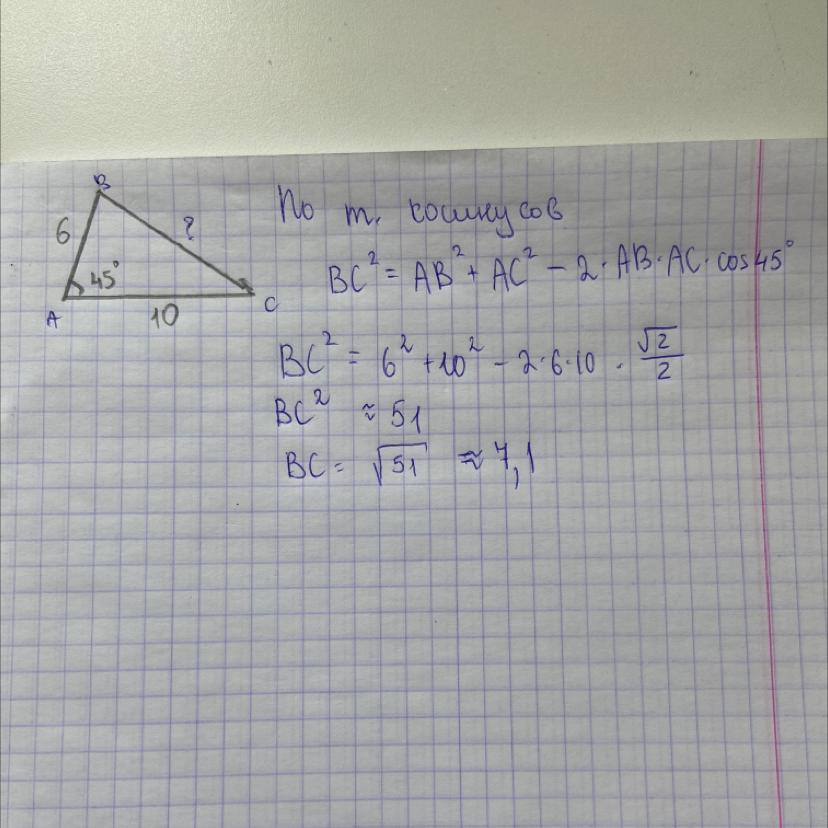 B
6
?
45°
A
10
C
По т. косинусов
BC² = AB² + AC² − 2·AB·AC·cos45°
BC² = 6² + 10² − 2·6·10 · √2/2
BC² ≈ 51
BC = √51 ≈ 7,1